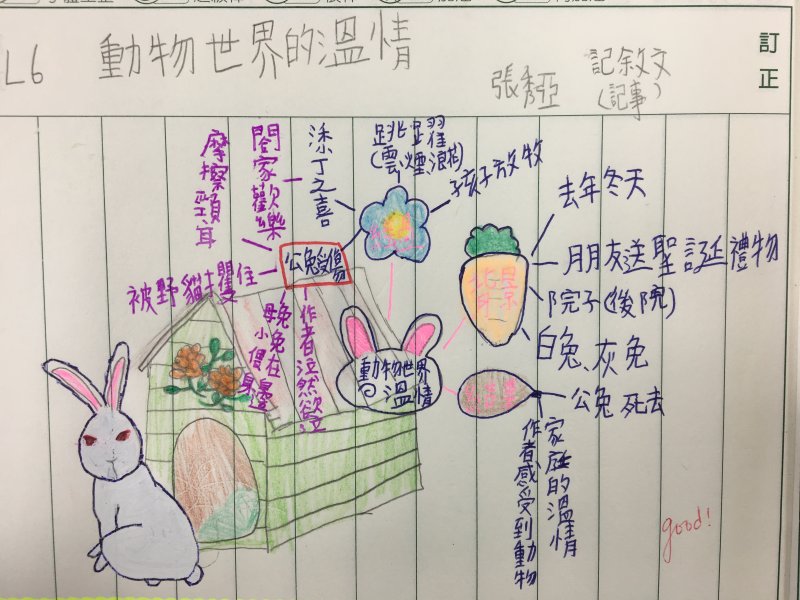 訂正
L6 動物世界的溫情
張秀亞 記敘文
(記事)
跳躍
(雲、煙、浪花)
孩子放牧
添丁之喜
闔家歡樂
摩擦頸耳
公兔受傷
被野貓攫住
母兔在
小兔身邊
作者泫然欲泣
動物世界
的溫情
背景
去年冬天
朋友送聖誕禮物
院子(後院)
白兔、灰兔
公兔死去
作者感受到動物
家庭的溫情
good!